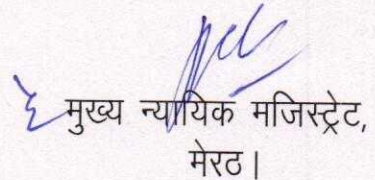 मुख्य न्यायिक मजिस्ट्रेट,
मेरठ।